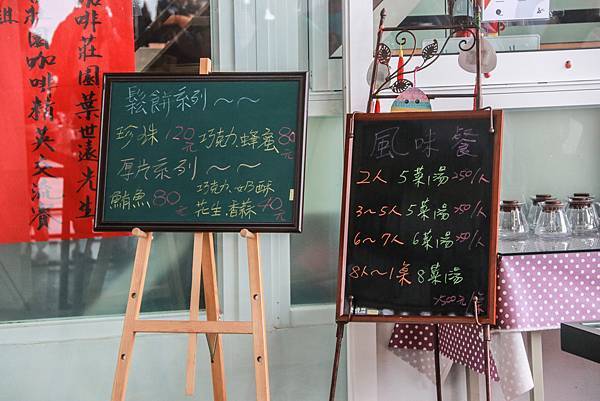 咖啡莊園葉世遠先生
咖啡精英交流賞
鬆餅系列~~
珍珠120元 巧克力、蜂蜜80元
厚片系列~~
鮪魚80元 巧克力、奶酥
花生、香蒜40元
風味餐
2人 5菜1湯250/人
3~5人5菜1湯250/人
6~7人 6菜1湯250/人
8人~1桌 8菜1湯
2500元/桌